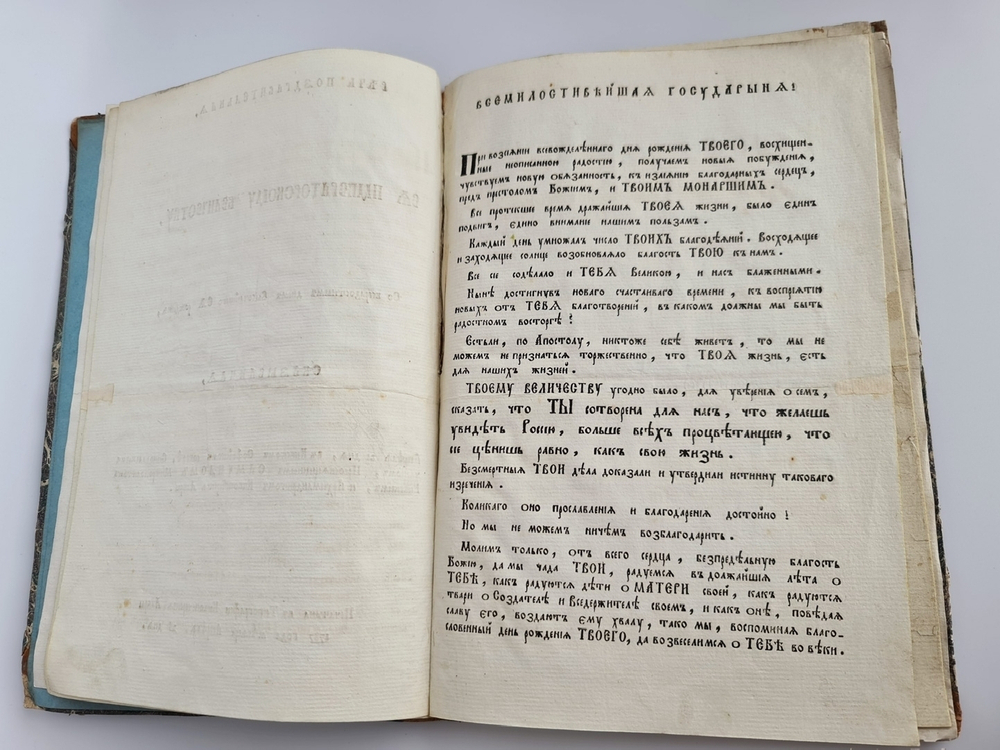 ВСЕМИЛОСТИВѢЙШАЯ ГОСУДАРЫНЯ!
При возсіяніи всевожделѣннаго дня рожденія ТВОЕГО, восхищен-
ные неописанною радостію, получаемъ новыя побужденія,
чувствуемъ новую обязанность, къ изъявленію благодарныхъ сердецъ,
предъ престоломъ Божіимъ, и ТВОИМЪ МОНАРШИМЪ.
Все протекшее время дражайшія ТВОЕЯ жизни, было единъ
подвигъ, едино вниманіе нашимъ пользамъ.
Каждый день умножалъ число ТВОИХЪ благодѣяній. Восходящее
и заходящее солнце возобновляло благость ТВОЮ къ намъ.
Все сіе содѣлало и ТЕБЯ Великою, и насъ блаженными.
Нынѣ достигнувъ новаго счастливаго времени, къ воспріятію
новыхъ отъ ТЕБЯ благотвореній, въ какомъ должны мы быть
радостномъ восторгѣ?
Естьли, по Апостолу, никтоже себѣ живетъ, то мы не
можемъ не признаться торжественно, что ТВОЯ жизнь, есть
для нашихъ жизней.
ТВОЕМУ ВЕЛИЧЕСТВУ угодно было, для увѣренія о семъ,
сказать, что ТЫ сотворена для насъ, что желаешь
увидѣть Россію, больше всѣхъ процвѣтающею, что
сіе цѣнишь равно, какъ свою жизнь.
Безсмертныя ТВОИ дѣла доказали и утвердили истинну таковаго
изреченія.
Коликаго оно прославленія и благодаренія достойно!
Но мы не можемъ ничѣмъ возблагодарить.
Молимъ только, отъ всего сердца, безпредѣльную благость
Божію, да мы чада ТВОИ, радуемся въ должайшія лѣта о
ТЕБѢ, какъ радуются дѣти о МАТЕРИ своей, какъ радуются
твари о Создателѣ и Вседержителѣ своемъ, и какъ онѣ, повѣдая
славу его, воздаютъ ему хвалу, тако мы, воспоминая благо-
словенный день рожденія ТВОЕГО, да возвеселимся о ТЕБѢ во вѣки.